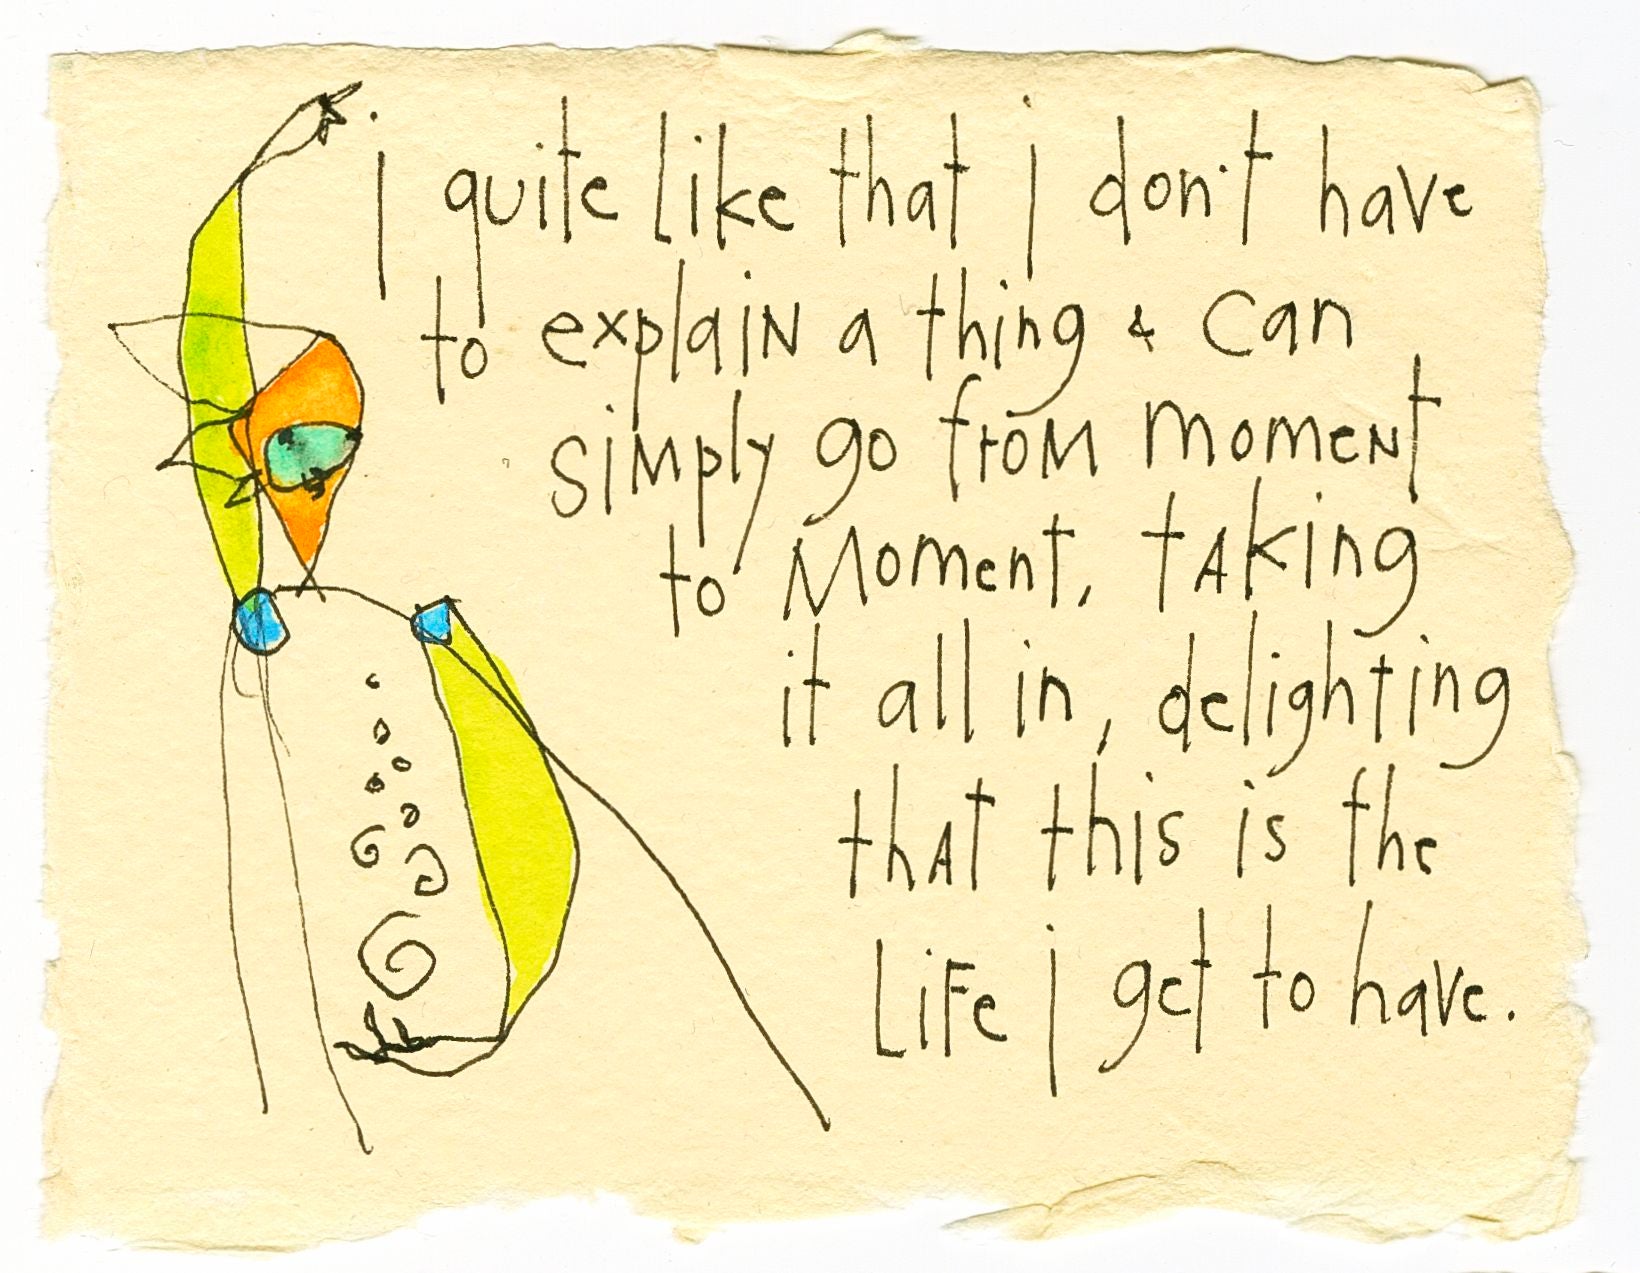 i quite like that i don't have
to explain a thing & can
simply go from moment
to moment, taking
it all in, delighting
that this is the
life i get to have.